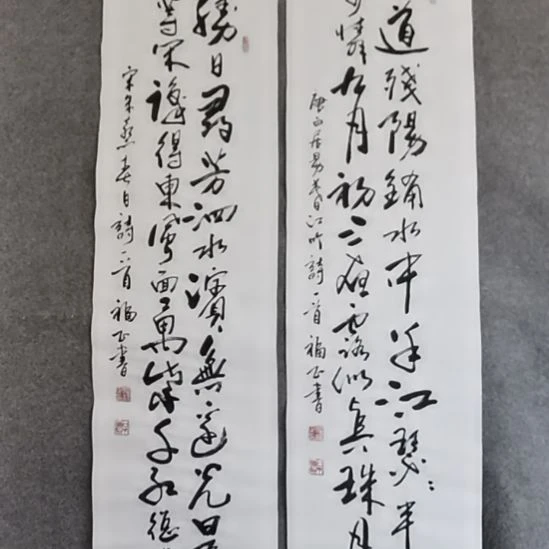 道殘陽鋪水中半江瑟々半
可憐九月初三夜露似真珠月
唐白居易暮江吟詩一首 福正書
勝日尋芳泗水濱無邊光
等閒識得東風面萬紫千紅總
宋朱熹春日詩一首 福正書